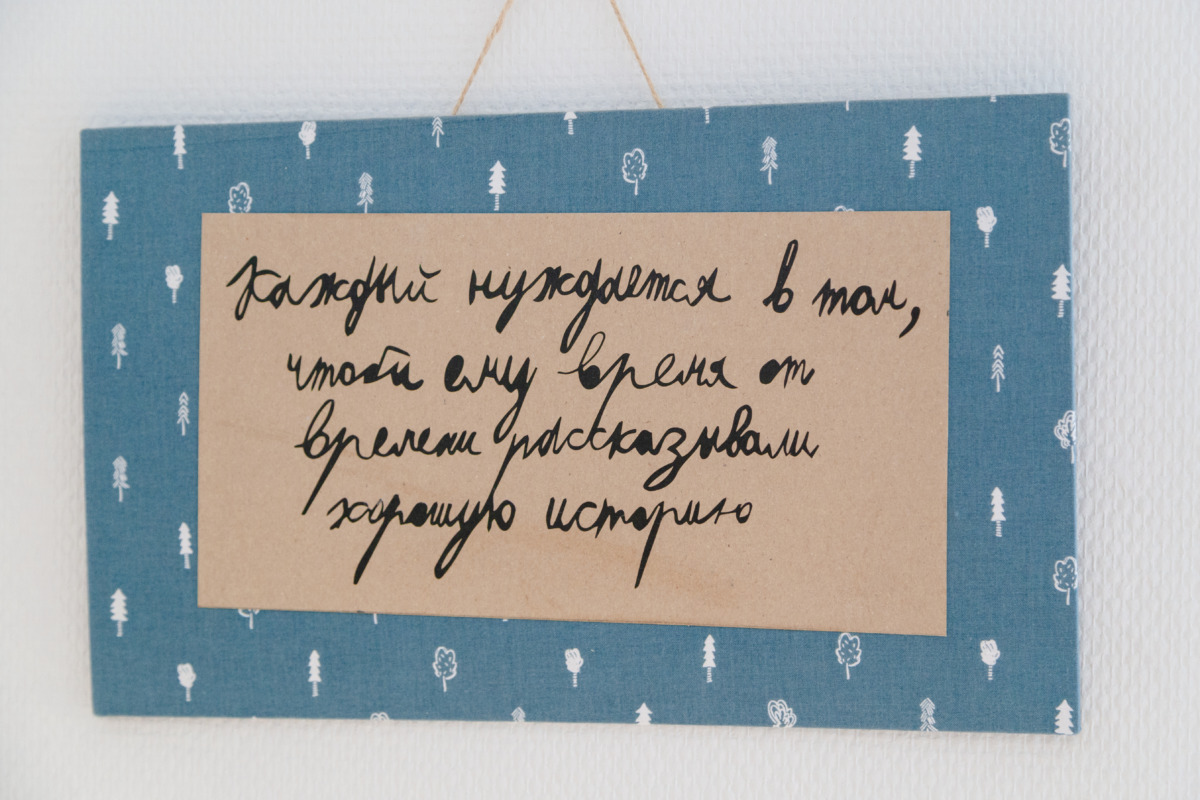 Каждый нуждается в том,
чтобы ему время от
времени рассказывали
хорошую историю